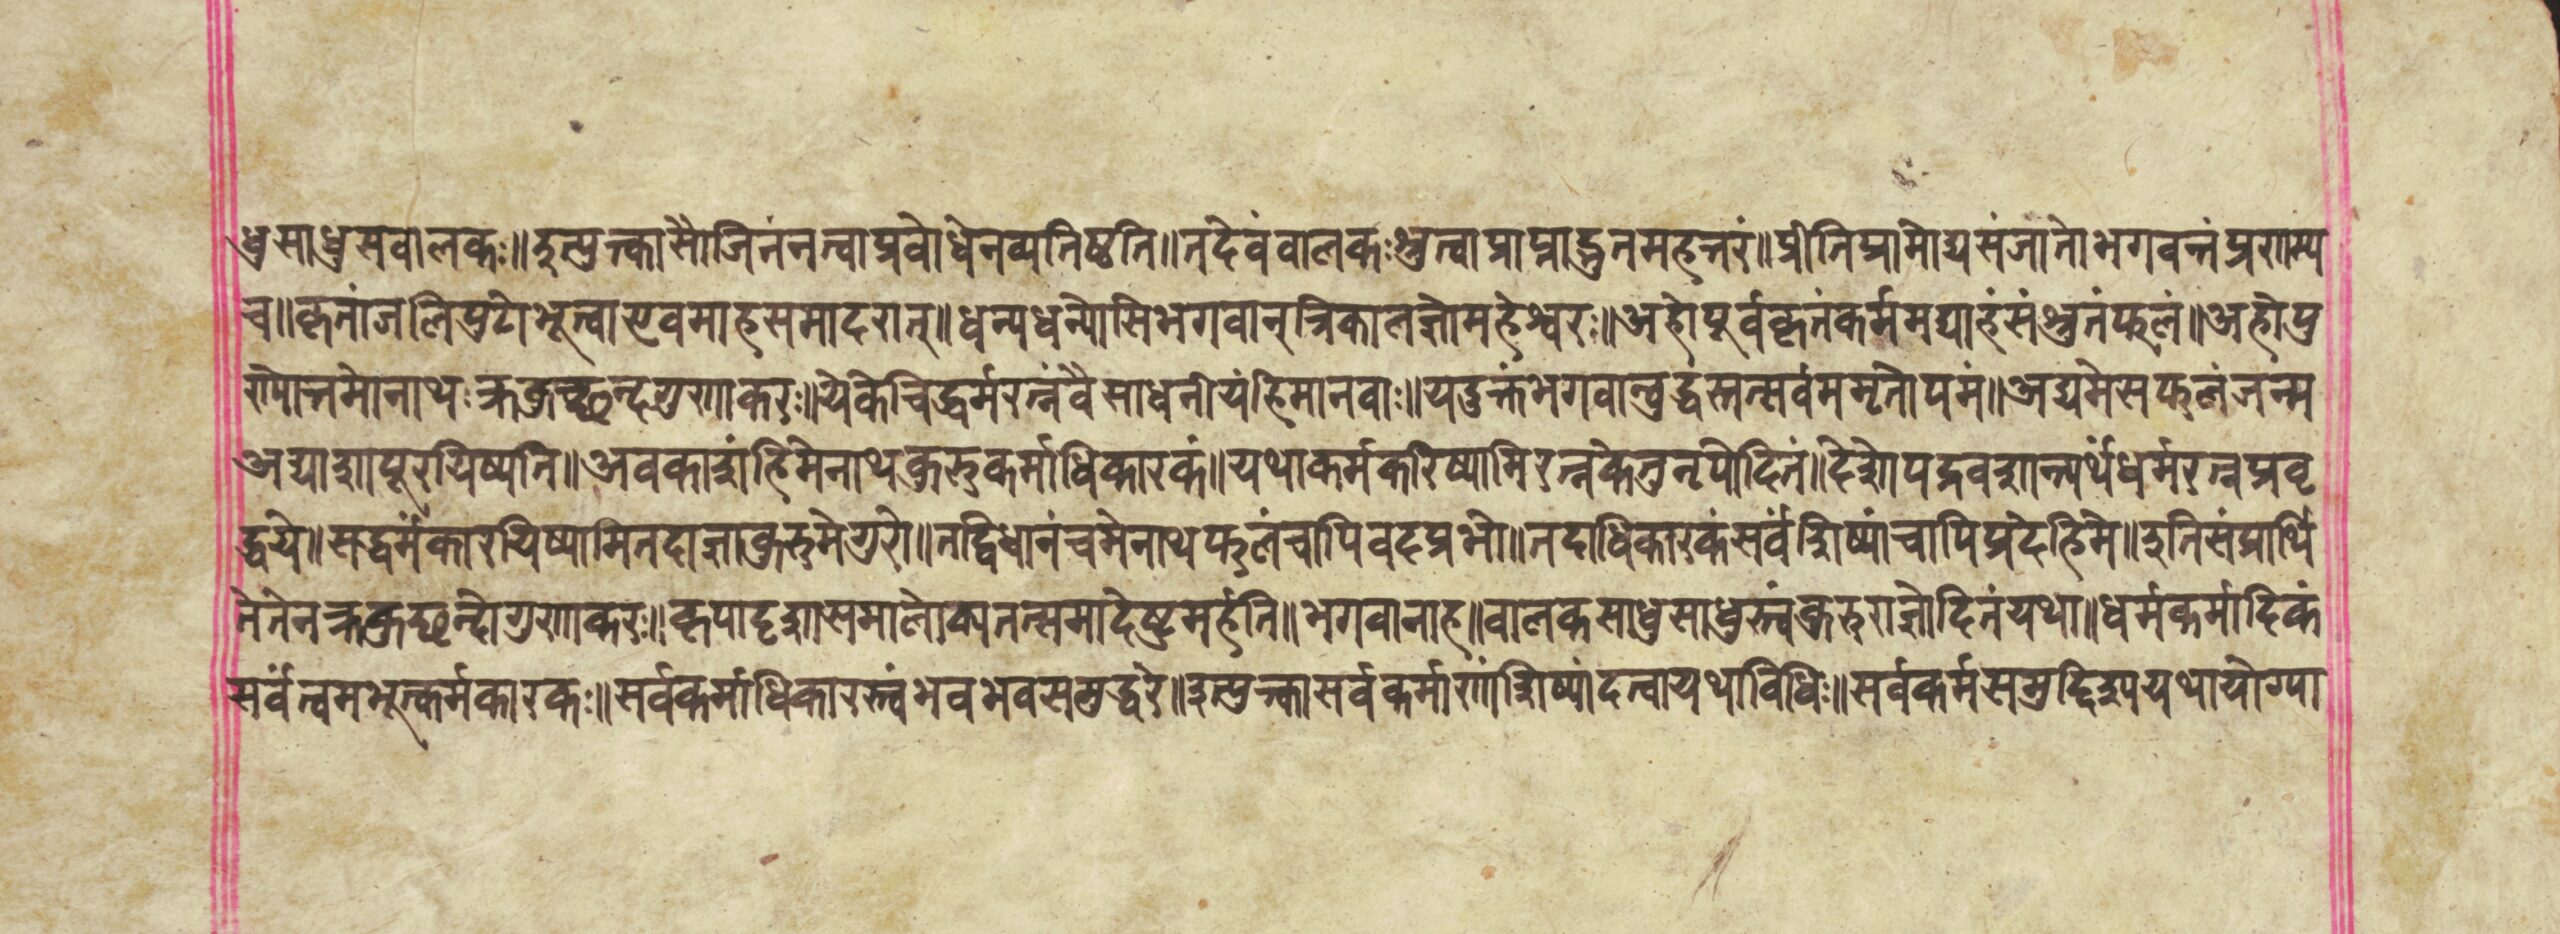 धुसाधुसवालकः॥इत्युक्त्कासौजिनंनत्वाप्रवोधेनव्यतिष्ठति॥तदेवंवालकःश्रुत्वाप्राप्नाद्भुतमहत्तरं॥प्रीतिप्रामोद्यसंजातोभगवन्तंप्रणम्य
च॥कृतांजलिपुटोभूत्वाएवमाहसमादरात्॥धन्यधन्योसिभगवान्त्रिकालज्ञोमहेश्वरः॥अहोपूर्वकृतंकर्ममद्याहंसंश्रुतंफलं॥अहोपु
रोपोत्तमोनाथःक्रकुच्छन्दगुणाकरः॥येकेचिद्धर्मरत्नंवैसाधनीयंहिमानवाः॥यदुक्तंभगवान्वुद्धंस्तत्सर्वममृतोपमं॥अद्यमेसफलंजन्म
अद्याशापूरयिष्यति॥अवकाशंहिमेनाथकुरुकर्माधिकारकं॥यथाकर्मकरिष्यामिरत्नकेतुनृपोदितं॥देशोपद्रवशान्त्यर्थंधर्मरत्नप्रवृ
द्धये॥सद्धर्मंकारयिष्यामितदाज्ञाकुरुमेगुरो॥तद्विधानंचमेनाथफलंचापिवदप्रभो॥तदाधिकारकंसर्वंशिष्यांचापिप्रदेहिमे॥इतिसंप्रार्थि
तेतेनक्रकुछन्दोगुणाकरः॥कृपादृशासमालोक्यतत्समादेष्टुमर्हति॥भगवानाह॥वालकसाधुसाधुस्त्वंकुरुराज्ञोदितंयथा॥धर्मकर्मादिकं
सर्वंत्वमभूत्कर्मकारकः॥सर्वकर्माधिकारस्त्वंभवभवसमुद्धरे॥इत्युक्त्कासर्वकर्माणांशिष्यांदत्वायथाविधिः॥सर्वकर्मसमुद्दिश्ययथायोग्पा